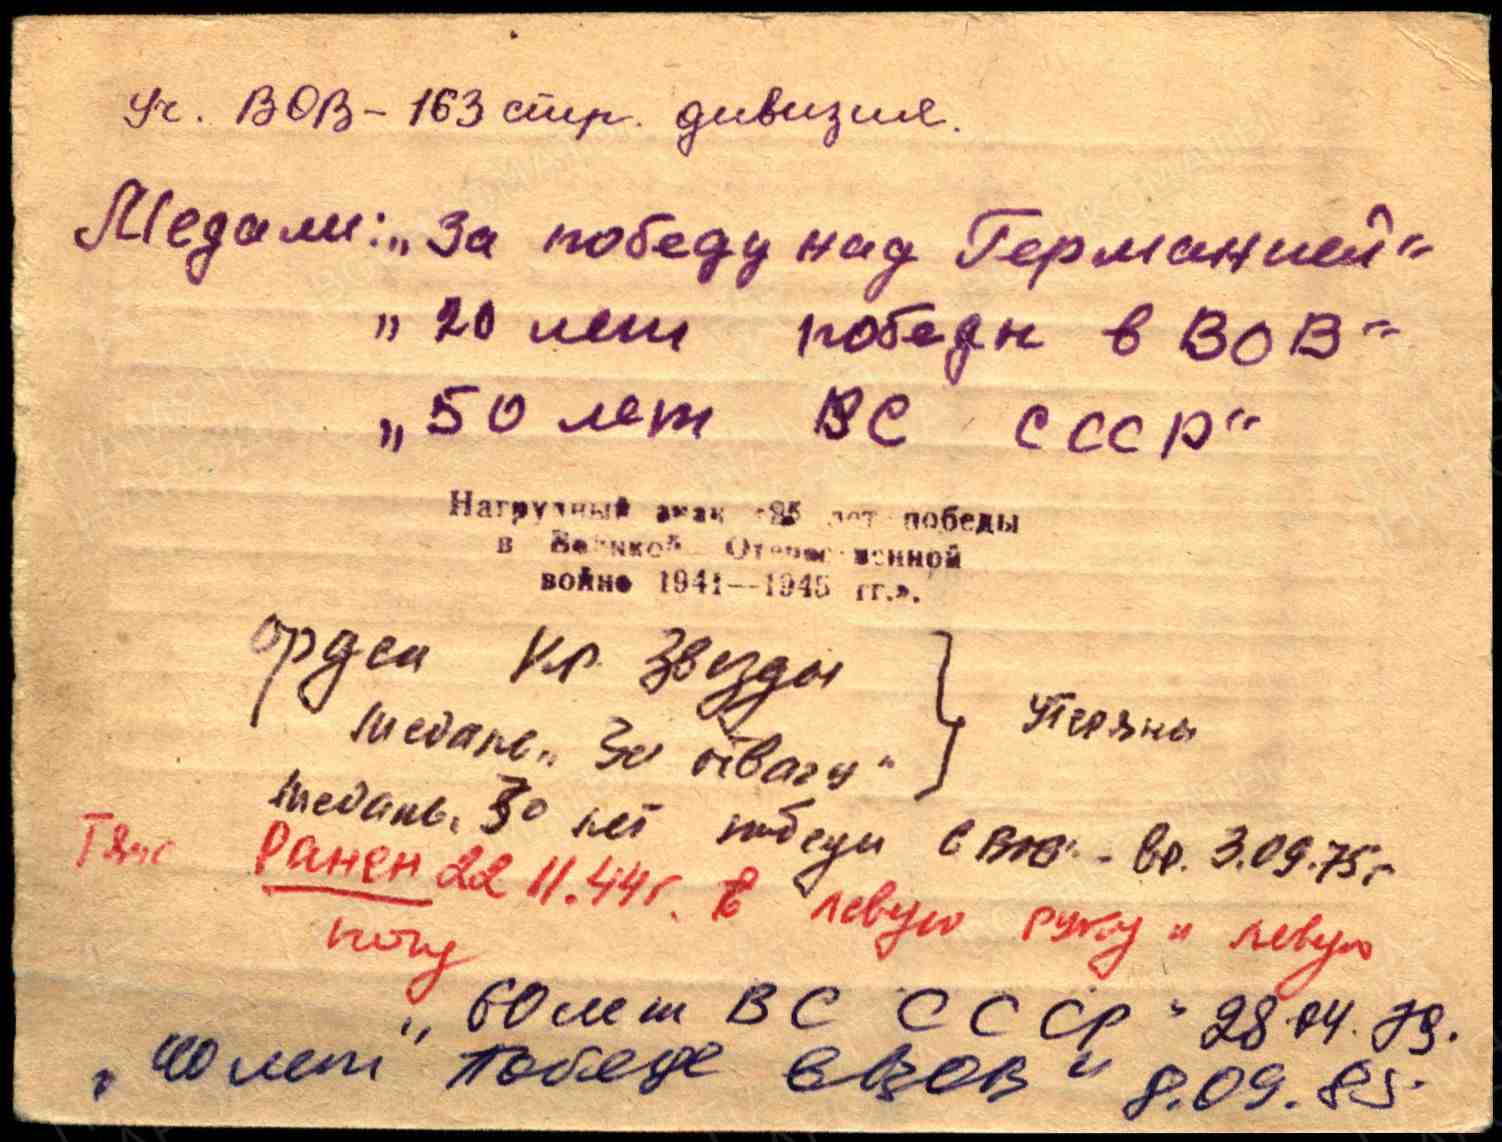 Уч. ВОВ - 163 стр. дивизия.
Медали: „За победу над Германией“
„20 лет победы в ВОВ“
„50 лет ВС СССР“
Нагрудный знак «25 лет победы
в Великой Отечественной
войне 1941—1945 гг.».
орден Кр. Звезды
медаль „За отвагу“
Утеряны
медаль „30 лет победы в ВОВ" - вр. 3.09.75г.
Тяж. Ранен 22 11.44г. в левую руку и левую
ногу
„60 лет ВС СССР" 28.04.79.
„40 лет Победе в ВОВ" 8.09.85.